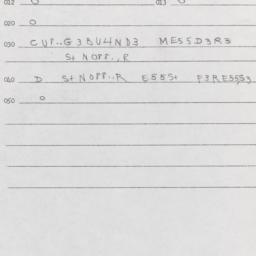 012 O 013 O
020 O
030 CUP..G3BU4ND3 MESSD3R3
S+NOPP..R
040 D S+NOPP..R E55S+ P3RE55S3
050 O